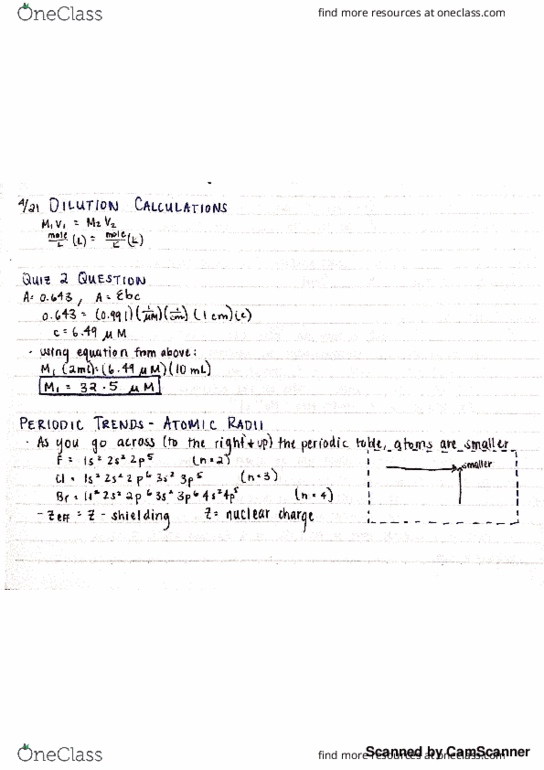 OneClass
find more resources at oneclass.com
4/21 DILUTION CALCULATIONS
M₁V₁ = M₂V₂
mole/L (L) = mole/L (L)
QUIZ 2 QUESTION
A= 0.643, A= Ɛbc
0.643 = (0.991)(1/μM)(1/cm)(1 cm)(c)
c= 6.49 μM
· using equation from above:
M₁ (2mL)=(6.49 μM)(10 mL)
M₁ = 32.5 μM
PERIODIC TRENDS - ATOMIC RADII
· As you go across (to the right + up) the periodic table, atoms are smaller
F = 1s² 2s² 2p⁵ (n=2)
smaller
Cl = 1s² 2s² 2p⁶ 3s² 3p⁵ (n=3)
Br = 1s² 2s² 2p⁶ 3s² 3p⁶ 4s² 4p⁵ (n=4)
- Zeff = Z - shielding Z= nuclear charge
OneClass
find more resources at oneclass.com
Scanned by CamScanner